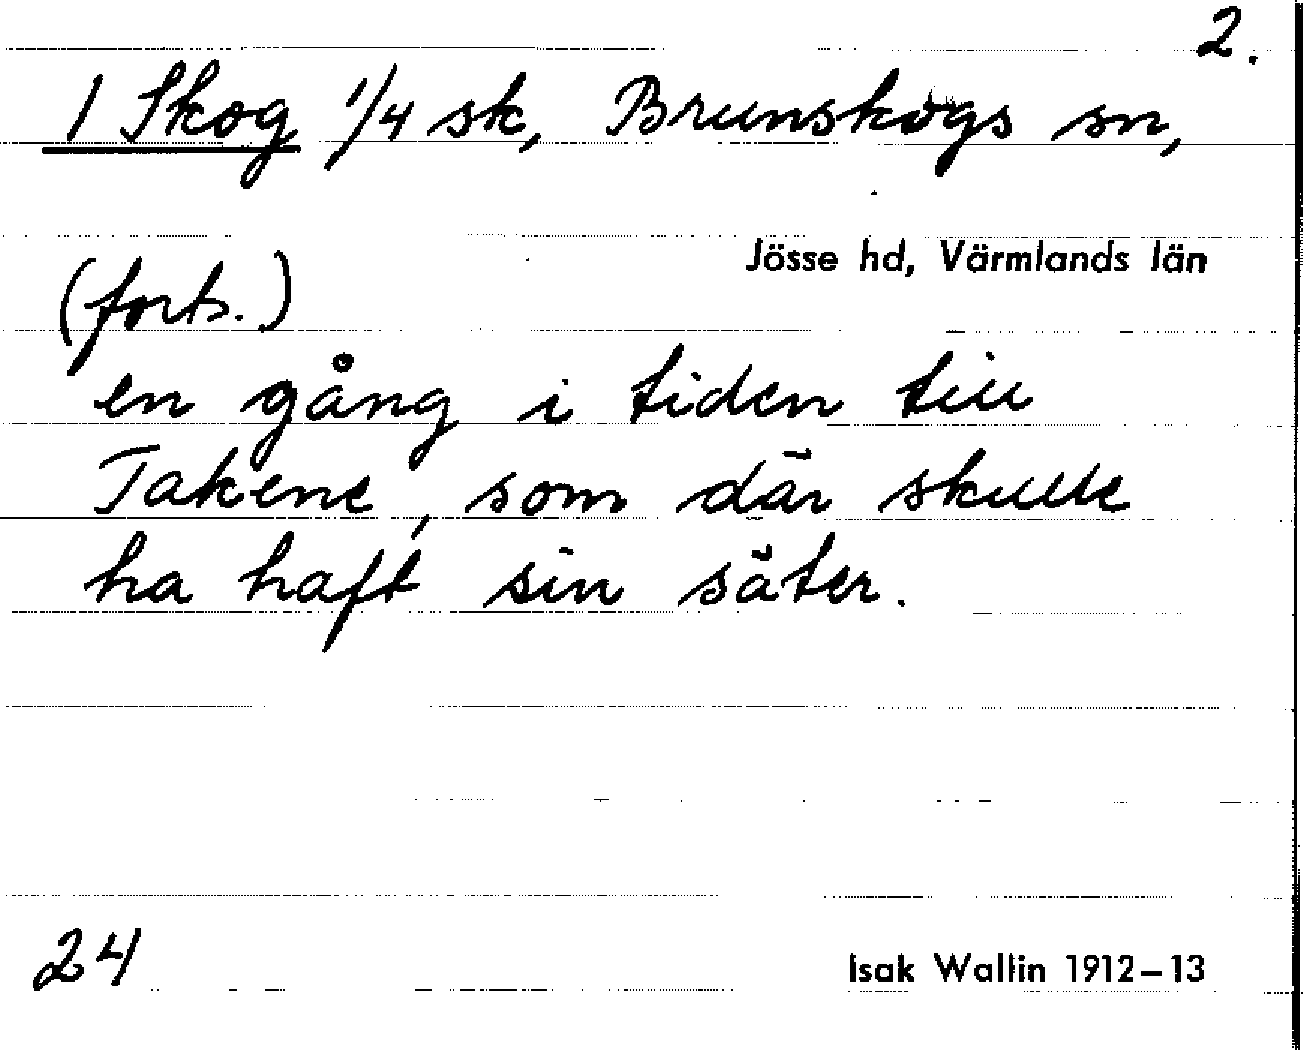 2.
1 Skog 1/4 sk, Brunskogs sn,
Jösse hd, Värmlands län
(forts.)
en gång i tiden till
Takene, som där skulle
ha haft sin säter.
24
Isak Wallin 1912–13